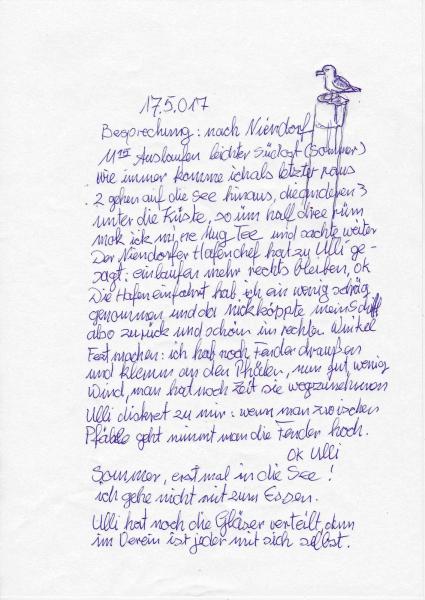 17.5.017
Besprechung: nach Niendorf
11⁰⁰ Auslaufen leichter Südost (Sommer)
wie immer komme ich als letzter raus
2 gehen auf die See hinaus, die anderen 3
unter die Küste, so üm half dree rüm
mak ick mi ne Mug Tee und sachte weiter
Der Niendorfer Hafenchef hat zu Ulli ge-
sagt: einlaufen mehr rechts bleiben, ok
Die Hafeneinfahrt hab ich ein wenig schräg
genommen und da nickköppte mein Schiff
also zurück und schön im rechten Winkel
Festmachen: ich hab noch Fender draußen
und klemm an den Pfählen, nun gut wenig
Wind, man hat noch Zeit sie wegzunehmen
Ulli diskret zu mir: wenn man zwischen
Pfähle geht nimmt man die Fender hoch.
ok Ulli
Sommer, erst mal in die See!
ich gehe nicht mit zum Essen.
Ulli hat noch die Gläser verteilt, denn
im Verein ist jeder mit sich selbst.